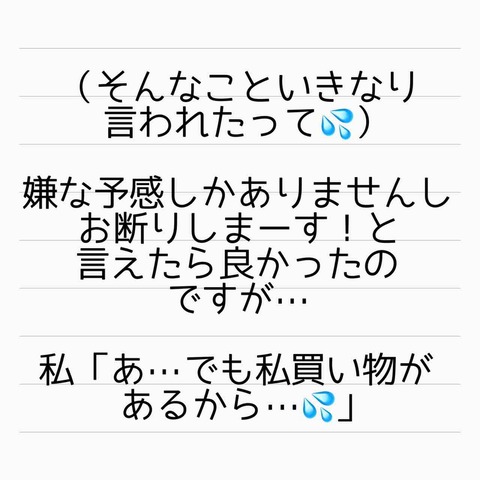 （そんなこといきなり
言われたって💦）
嫌な予感しかありませんし
お断りしまーす！と
言えたら良かったの
ですが…
私「あ…でも私買い物が
あるから…💦」